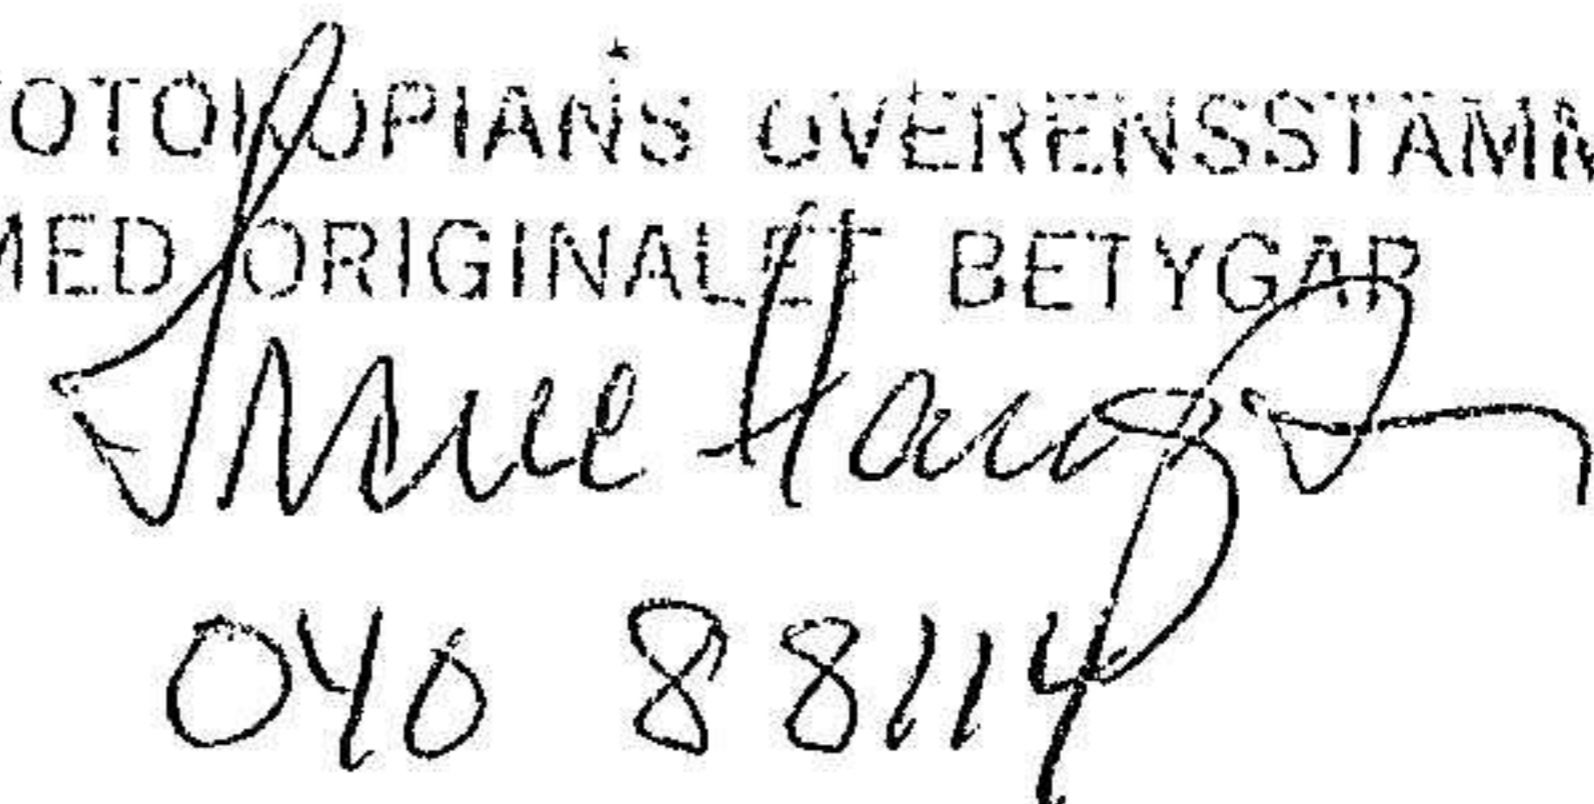 OTOKOPIANS ÖVERENSSTÄMM
MED ORIGINALET BETYGAR
040 88114